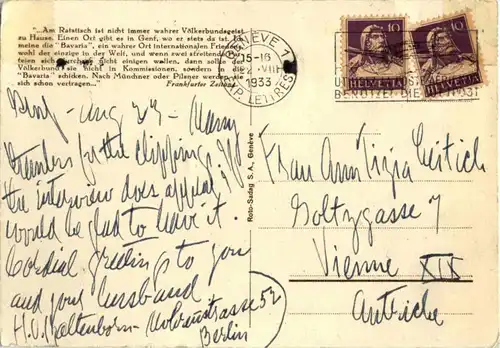 "Am Ratstisch ist nicht immer wahrer Völkerbundsgeist
zu Hause. Einen Ort gibt es in Genf, wo er stets da ist. Ich
meine die "Bavaria", ein wahrer Ort internationalen Friedens,
wohl der einzige in der Welt, und wenn zwei streitende
sich nicht einigen wollen, dann sollte der
Völkerbund sie nicht in Kommissionen, sondern in die
"Bavaria" schicken. Nach Münchner oder Pilsner werden sie
sich schon vertragen..." Frankfurter Zeitung.
GENÈVE 1
15-16
22.VIII
1933
EXP. LETTRES
10
HELVETIA
10
HELVETIA
Aug 23 - Many
thanks for the clipping. If
the interview does appeal
would be glad to have it.
Cordial greetings to you
and your husband
H.V. Kaltenborn - 52
Berlin
Roto-Sadag S. A., Genève
Frau Ann Tizia Leitich
Goltzgasse 7
Vienne XIX
Autriche